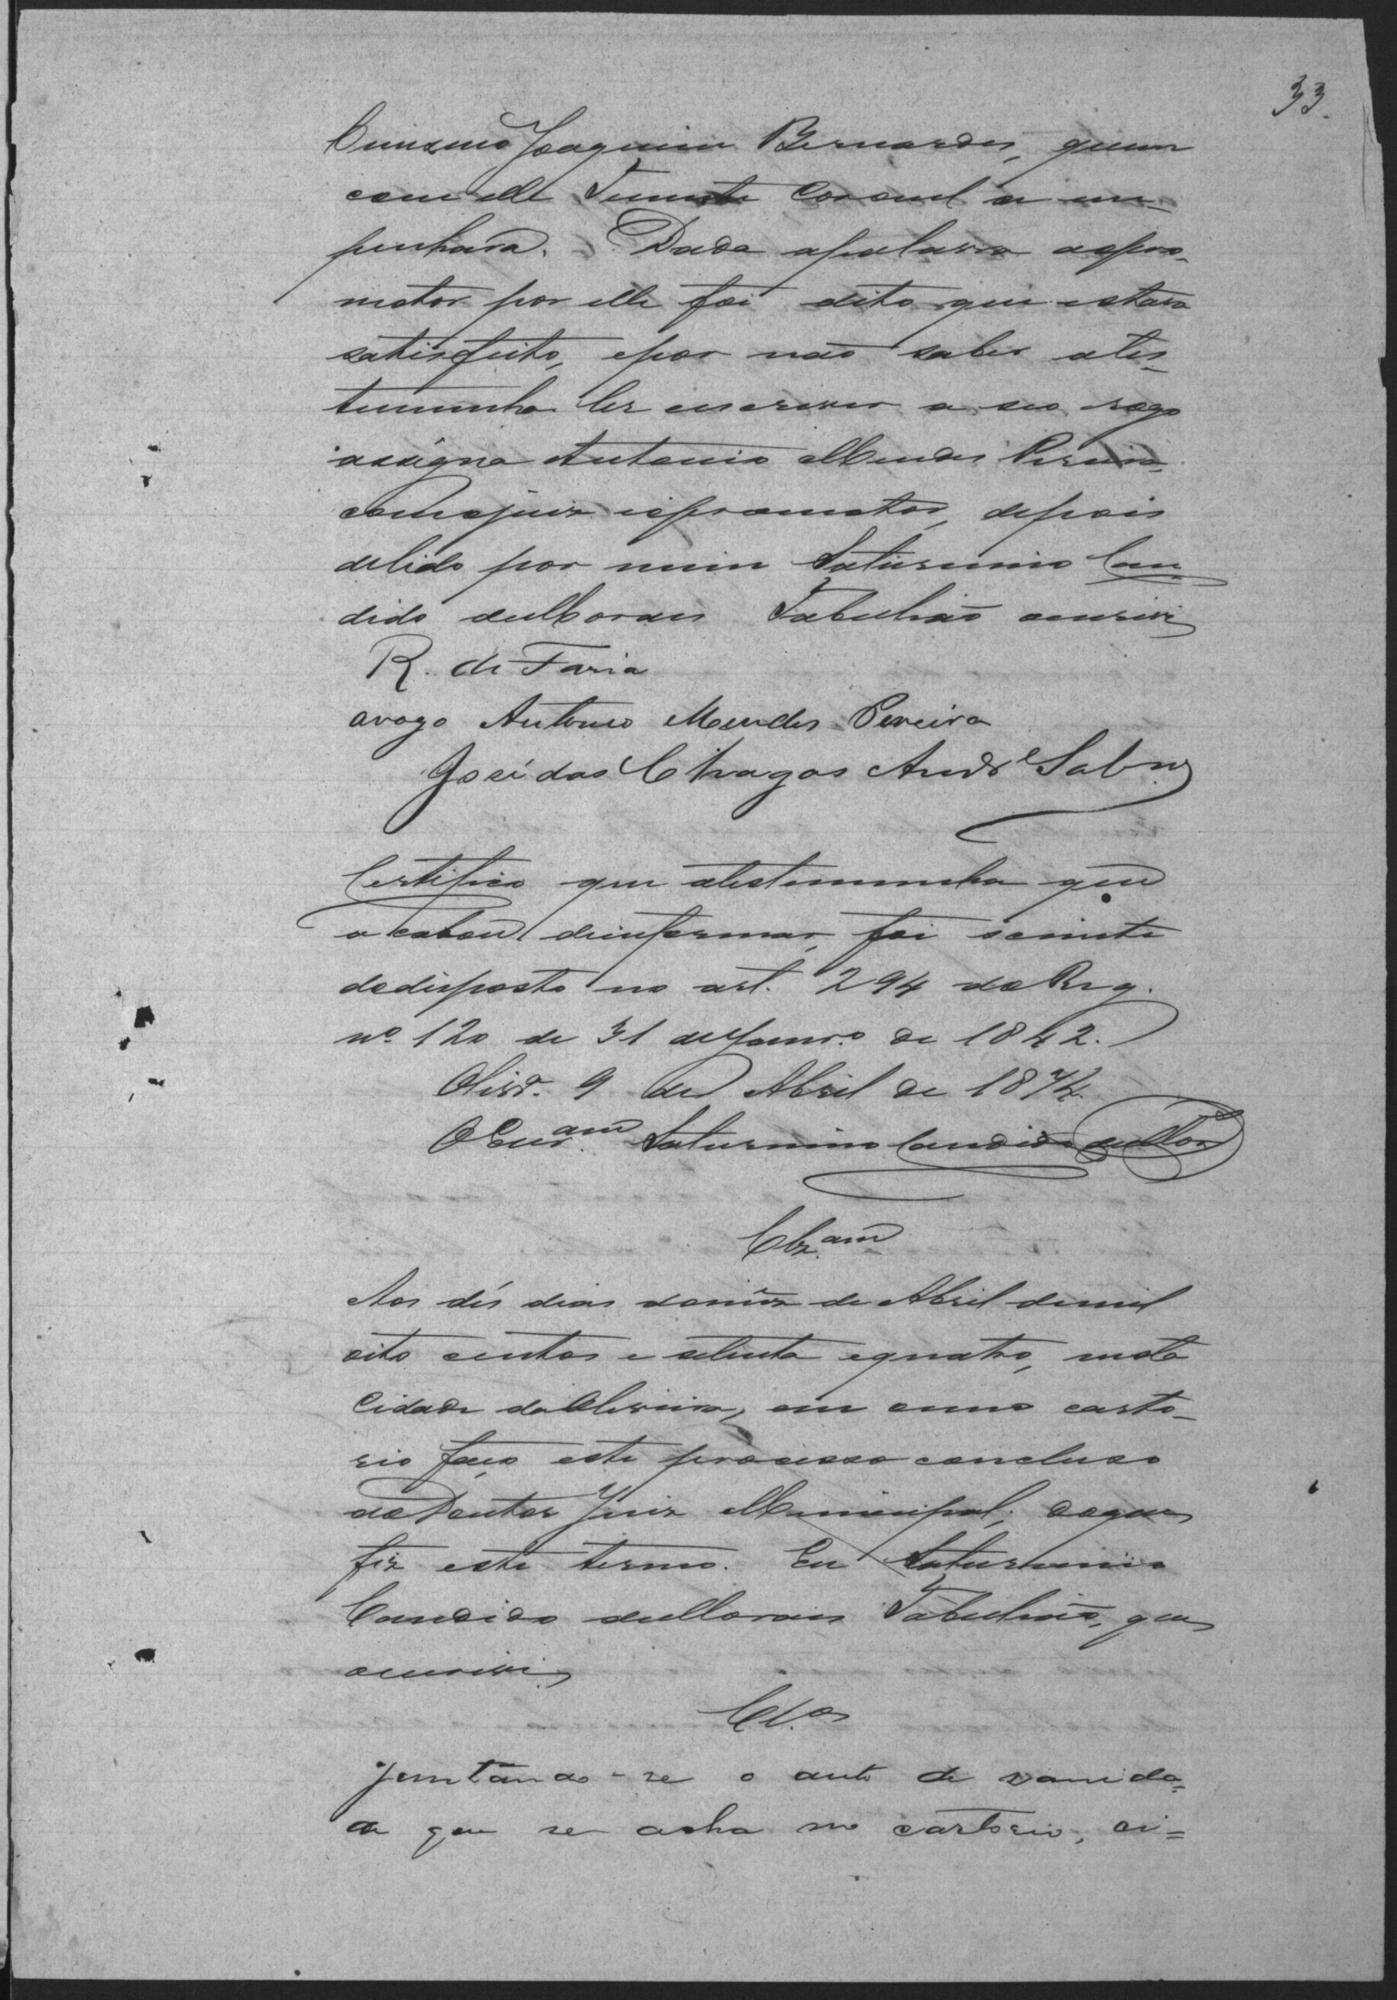 33.
Joaquim Bernardes, quem
com elle Tenente Coronel a em-
penhara. Dada apalavra aopro-
motor por elle foi dito que estava
satisfeito, epor não saber ates-
temunha ler eescrever a seo rogo
assigna Antonio Mendes Pereira,
comojuiz eopromotor, depois
delido por mim Saturnino Can
dido deMoraes Tabelião oescrivi
R. de Faria
arogo Antonio Mendes Pereira
José das Chagas Andre Sabn.
Certifico que atestemunha que
acabou deinformar, foi sciente
dodisposto no art. 294 do Reg.
nº 120 de 31 deJanr.º de 1842.
Olivr.ª 9 de Abril de 1874.
OEscr.am Saturnino Candido deMor
Clz.am
Aos dés dias domêz de Abril demil
oito centos e setenta equatro, nesta
Cidade daOliveira, em meuo carto-
rio faço este processo concluso
aoDoutor Juiz Municipal; doque
fiz este termo. Eu Saturnino
Candido deMoraes Tabelião, que
oescrivi
Cl.os
Juntando-se o auto de sanida-
que se acha no cartorio, ci=